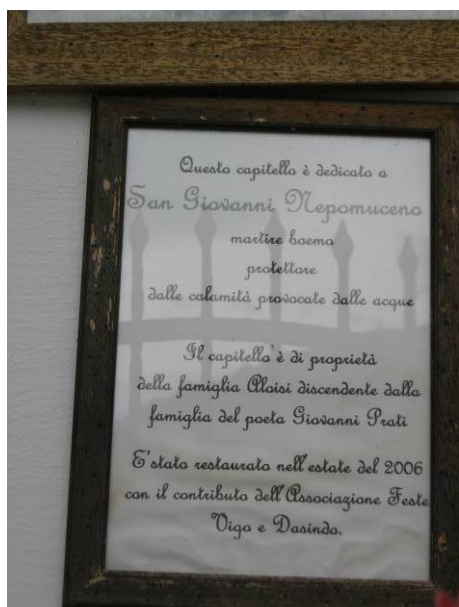 Questo capitello è dedicato a
San Giovanni Nepomuceno
martire boemo
protettore
dalle calamità provocate dalle acque
Il capitello è di proprietà
della famiglia Aloisi discendente dalla
famiglia del poeta Giovanni Prati
E' stato restaurato nell'estate del 2006
con il contributo dell'Associazione Feste
Vigo e Dasindo.